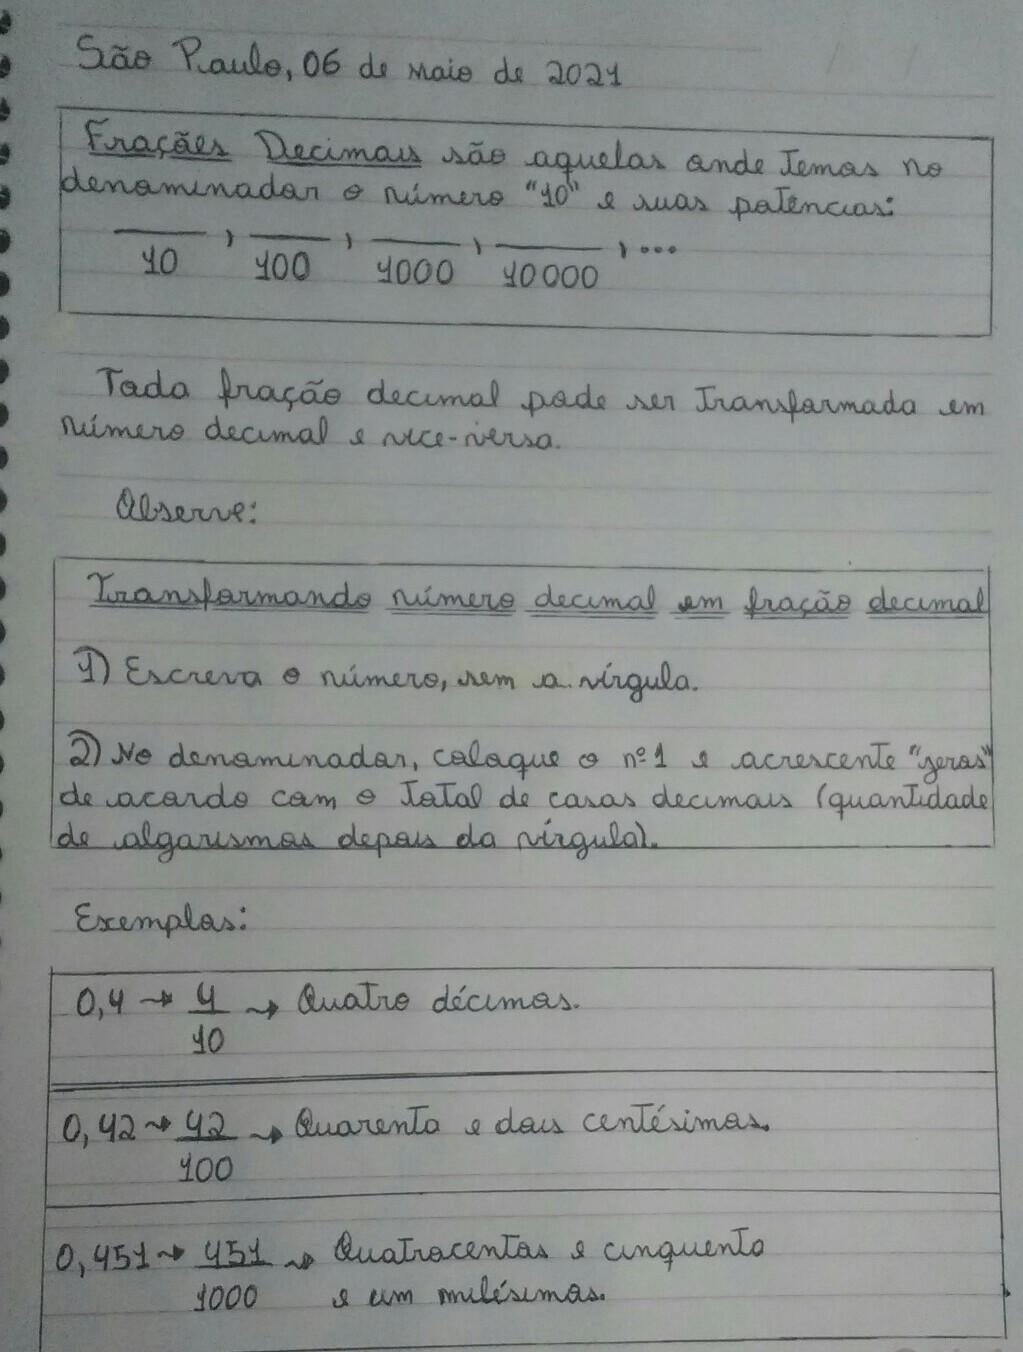 São Paulo, 06 de maio de 2021
Frações Decimais são aquelas onde temos no
denominador o número "10" e suas potências:
__ , __ , __ , __ , ...
10 100 1000 10000
Toda fração decimal pode ser transformada em
número decimal e vice-versa.
Observe:
Transformando número decimal em fração decimal
1) Escreva o número, sem a vírgula.
2) No denominador, coloque o nº 1 e acrescente "zeros"
de acordo com o total de casas decimais (quantidade
de algarismos depois da vírgula).
Exemplos:
0,4 → 4 → Quatro décimos.
10
0,42 → 42 → Quarenta e dois centésimos.
100
0,451 → 451 → Quatrocentos e cinquenta
1000 e um milésimos.